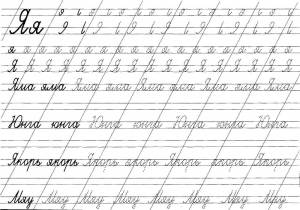 Яя
я я я я я я я я я я я
Я Я Я Я Я Я Я Я Я Я Я Я
Яма яма Яма яма Яма яма Яма
Юнга юнга Юнга юнга Юнга юнга Юнга
Якорь якорь Якорь якорь Якорь якорь Якорь
Мяу Мяу Мяу Мяу Мяу Мяу Мяу Мяу